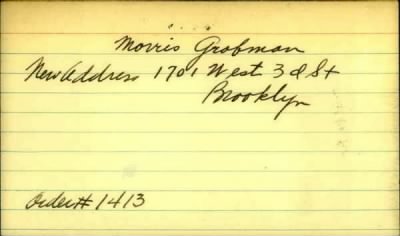 Morris Grofman
New Address 1701 West 3d St
Brooklyn
Order# 1413